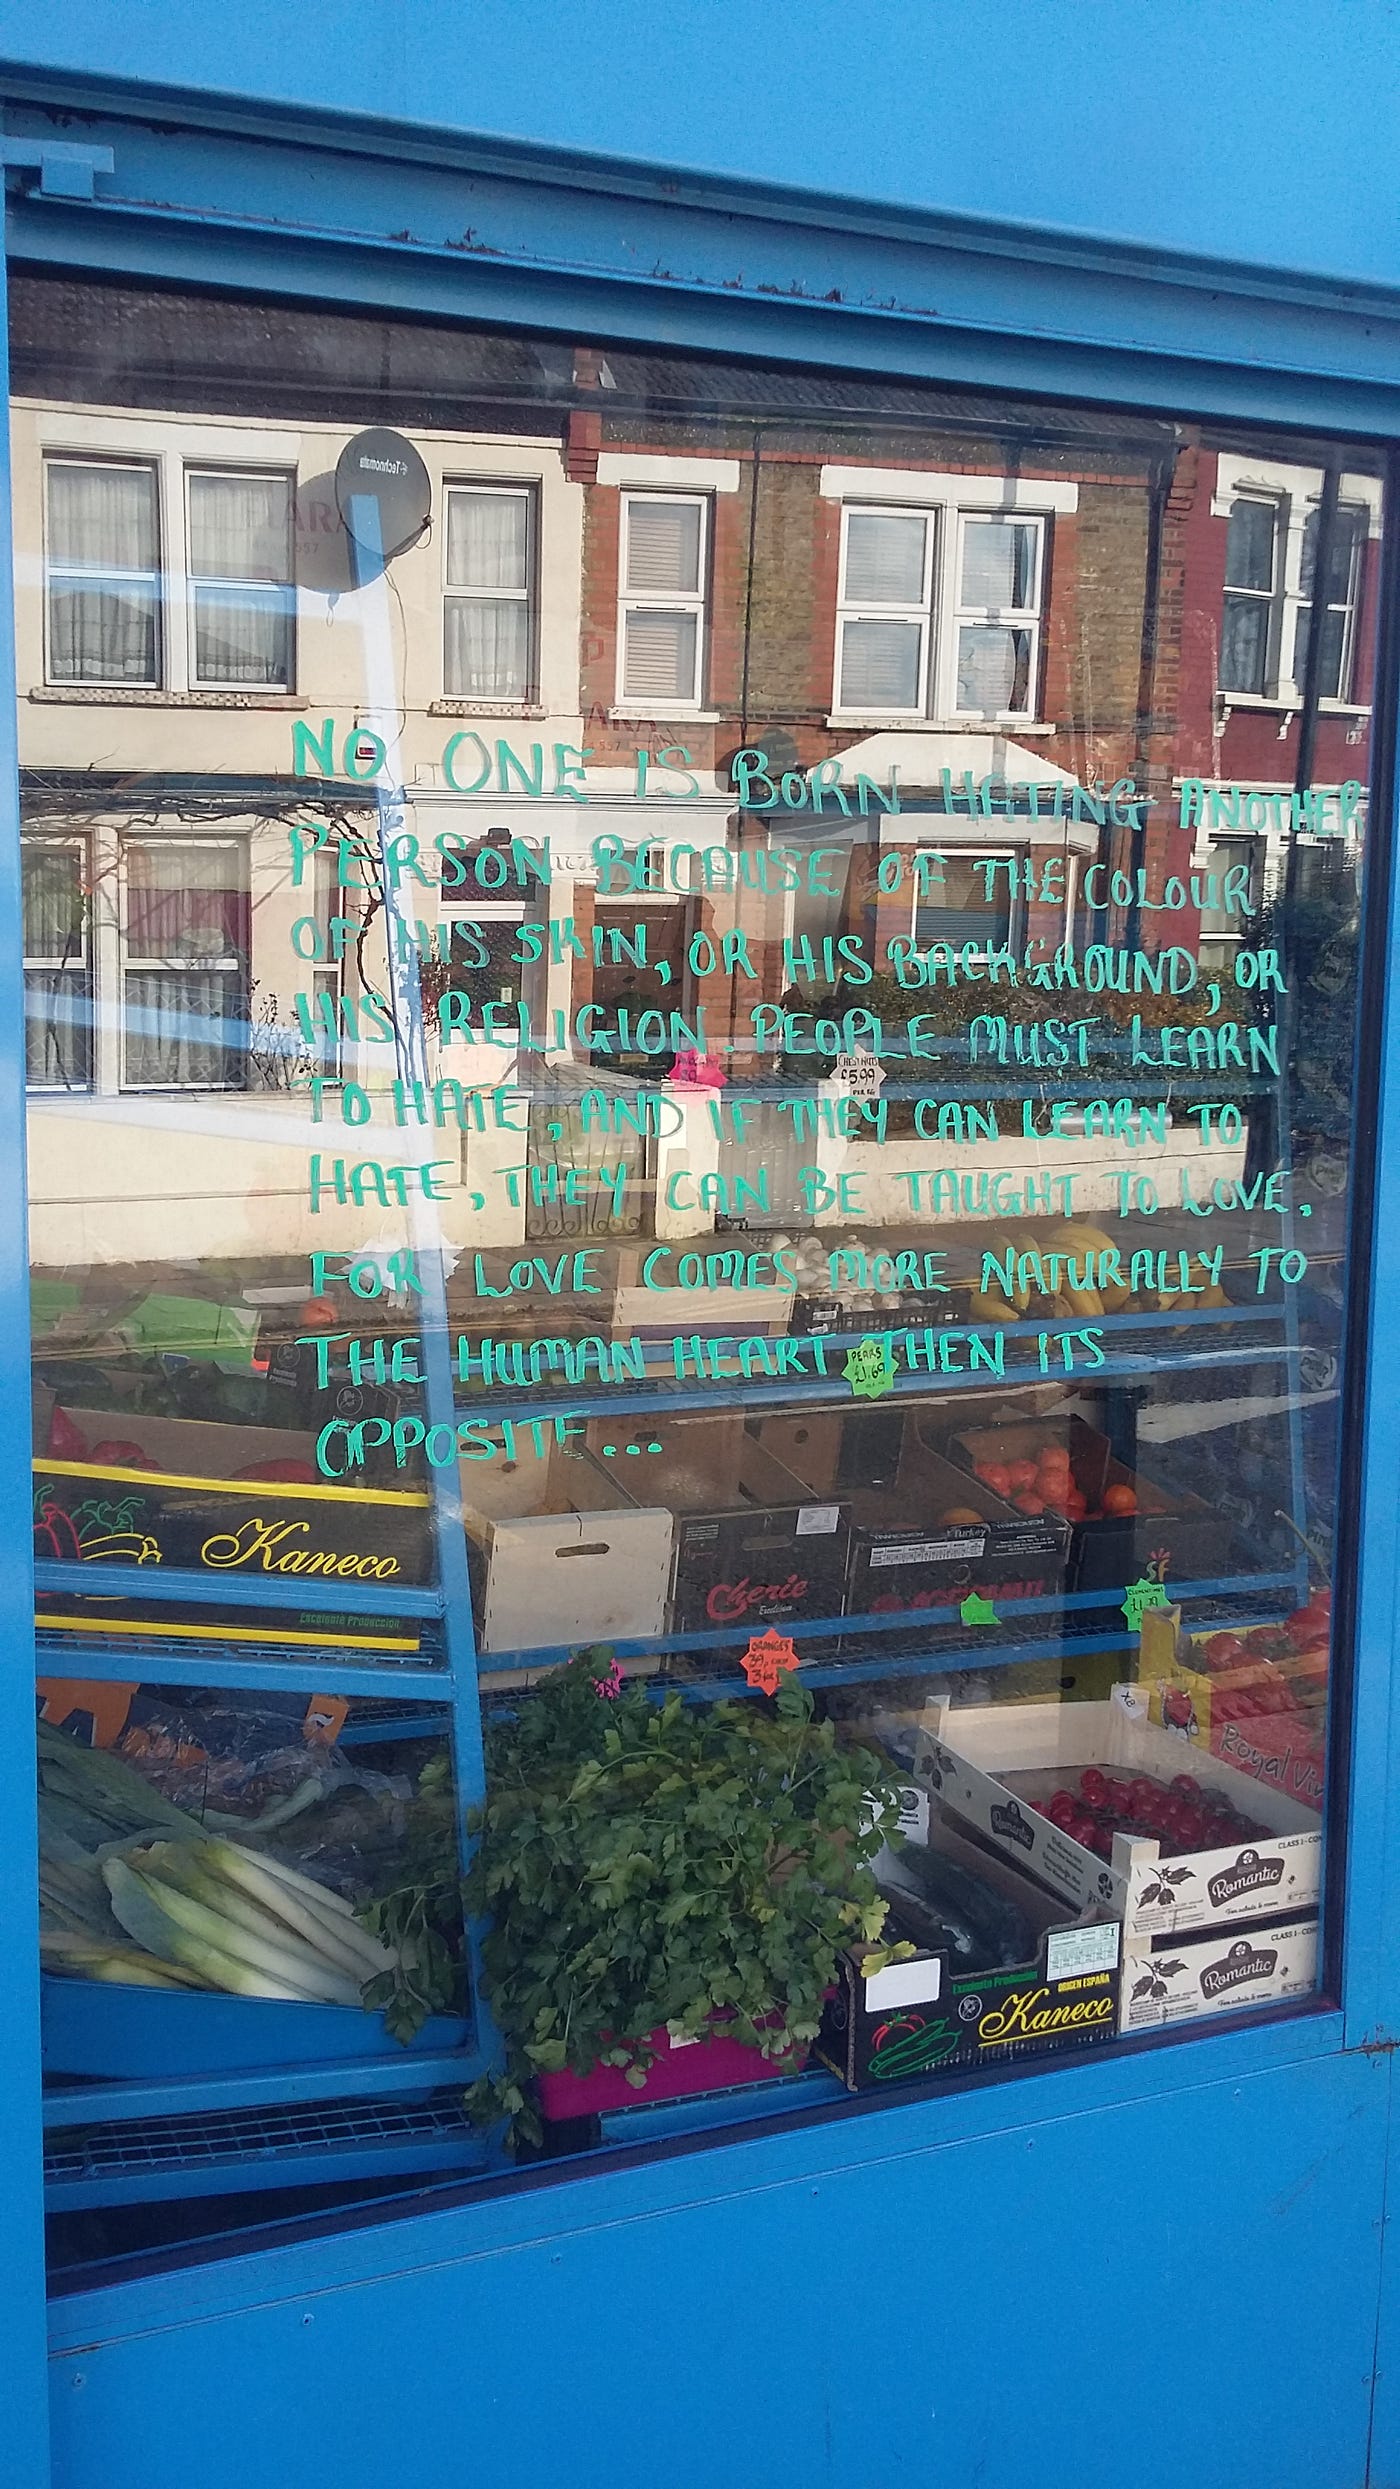 NO ONE IS BORN HATING ANOTHER
PERSON BECAUSE OF THE COLOUR
OF HIS SKIN, OR HIS BACKGROUND, OR
HIS RELIGION. PEOPLE MUST LEARN
TO HATE, AND IF THEY CAN LEARN TO
HATE, THEY CAN BE TAUGHT TO LOVE.
FOR LOVE COMES MORE NATURALLY TO
THE HUMAN HEART THEN ITS
OPPOSITE...
Technomate
CHESTNUTS
£5.99
PER KG
PEARS
£1.69
Kaneco
Excelente Producción
Cherie
Turkey
SF
CLEMENTINES
ORANGES
39p EACH
Royal
XB
Romantic
CLASS 1
Romantic
CLASS 1
Romantic
Excelente Producción
ORIGEN ESPAÑA
Kaneco